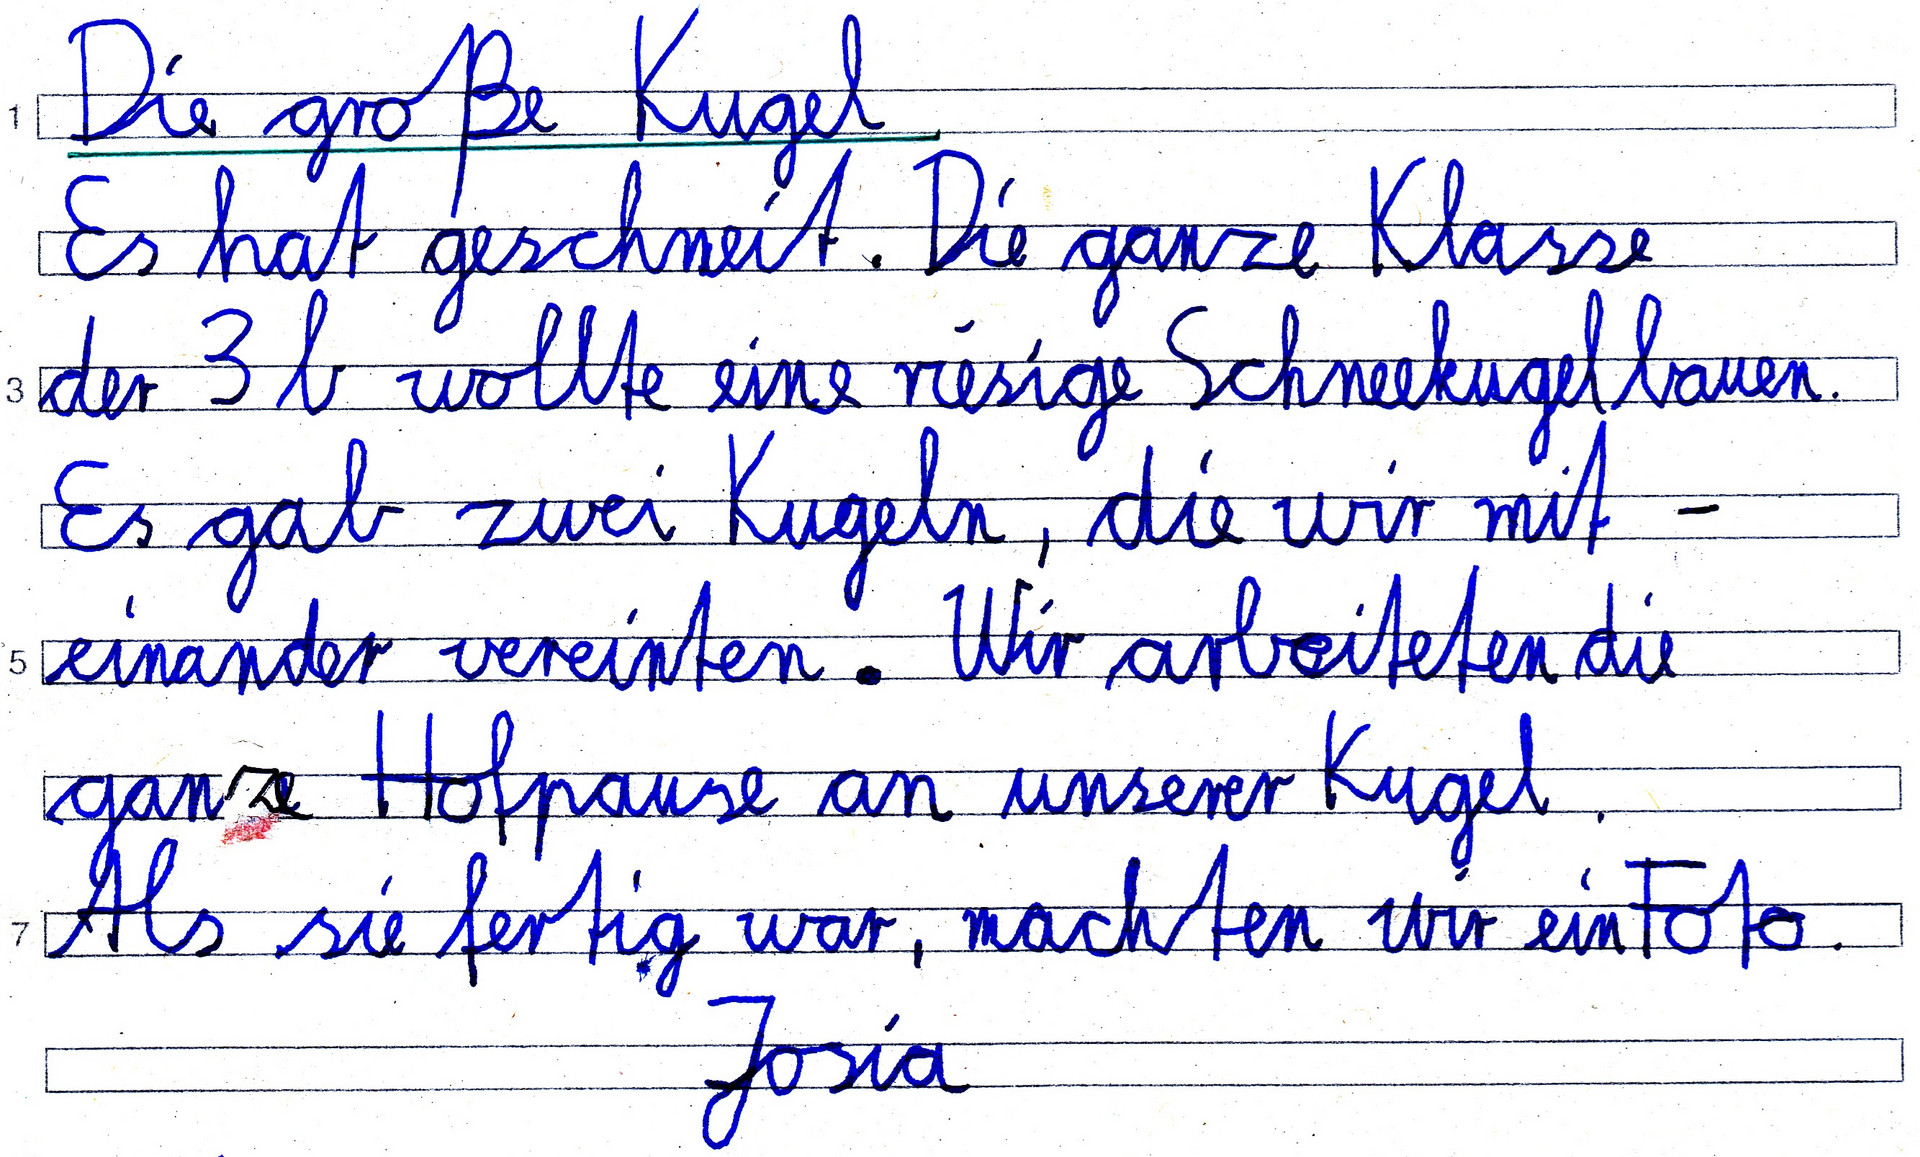 Die große Kugel
Es hat geschneit. Die ganze Klasse
der 3b wollte eine riesige Schneekugel bauen.
Es gab zwei Kugeln, die wir mit-
einander vereinten. Wir arbeiteten die
ganze Hofpause an unserer Kugel.
Als sie fertig war, machten wir ein Foto.
Josia